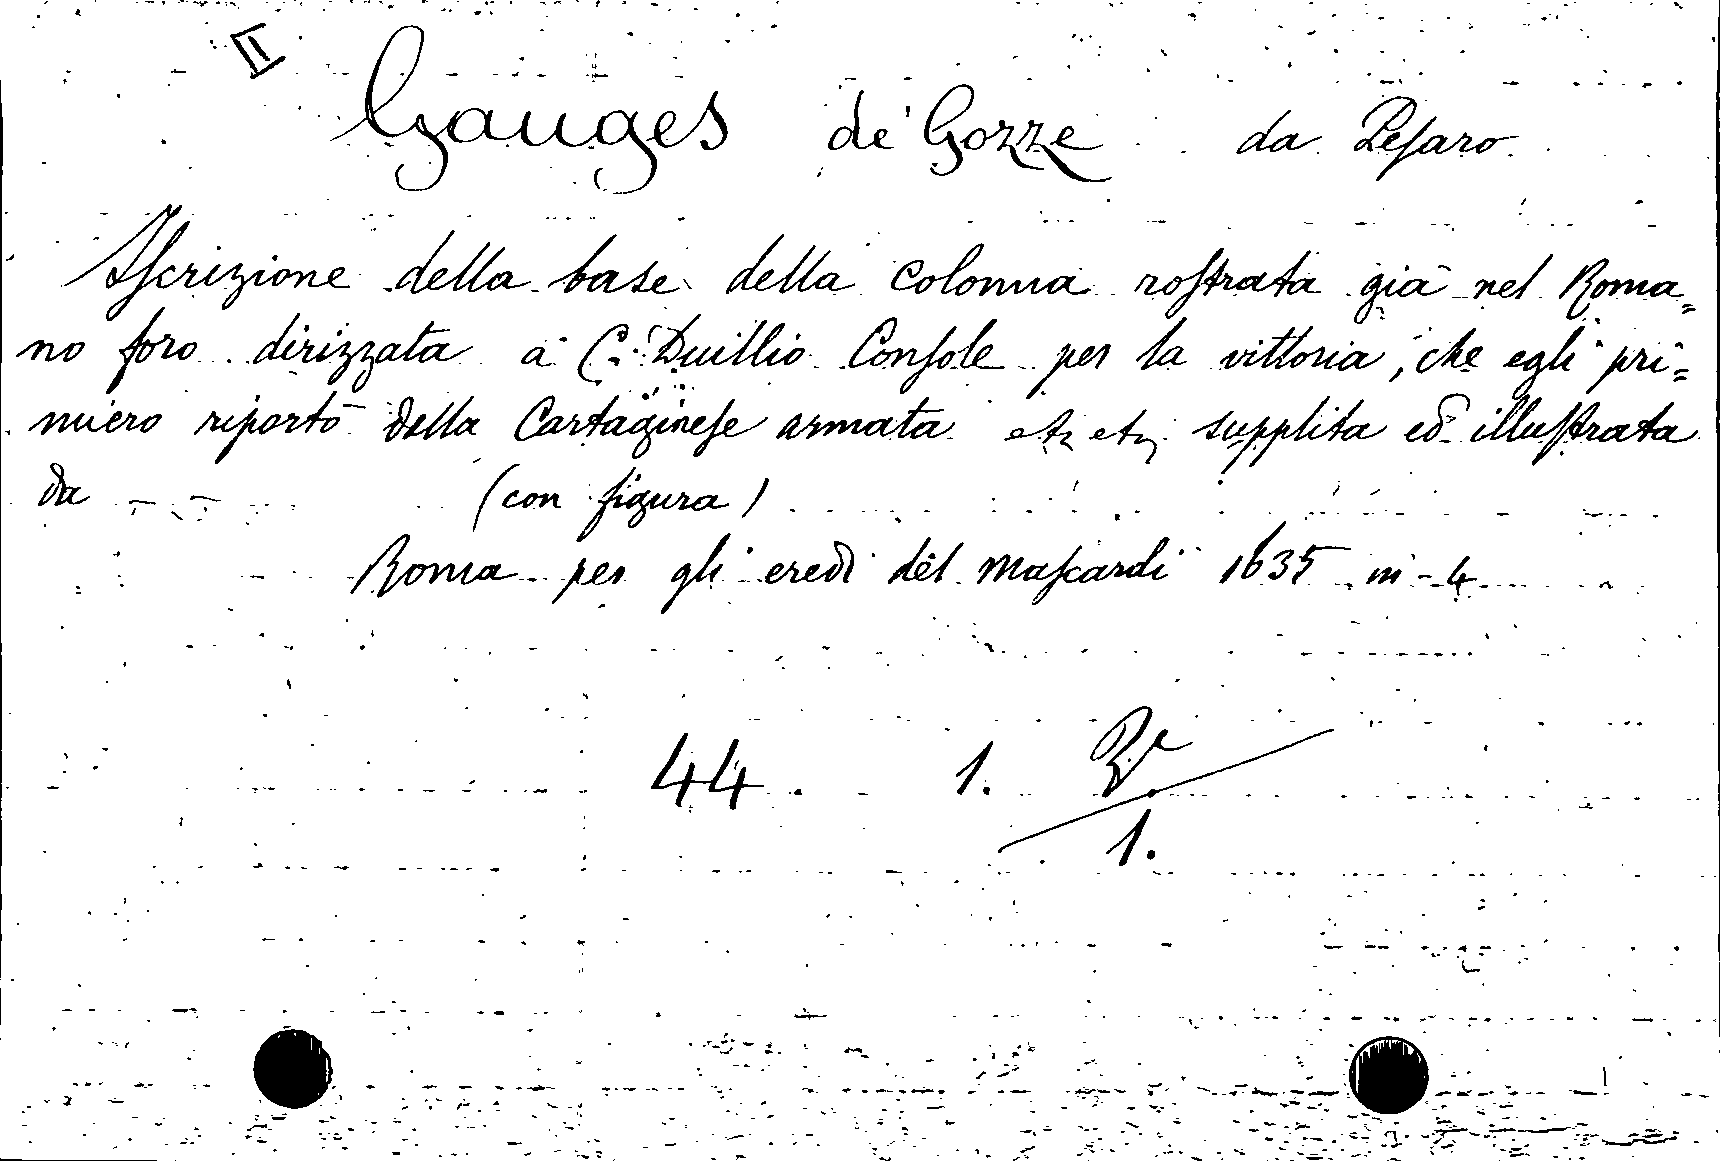 II
Gauges de' Gozze da Pesaro
Iscrizione della base della colonna rostrata già nel Roma=
no foro dirizzata a C. Duillio Console per la vittoria, che egli pri=
miero riportò della Cartaginese armata etc etc supplita ed illustrata
da — — (con figura)
Roma per gli eredi del Mascardi 1635 in-4
44. 1.
1.